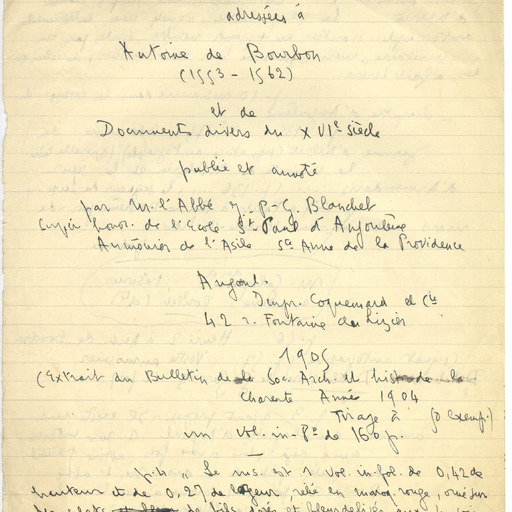 adressées à
Antoine de Bourbon
(1553 - 1562)
et de
Documents divers du XVIe siècle
publié et annoté
par M. l'Abbé J. P. - G. Blanchet
Supér honor. de l'Ecole St Paul d'Angoulême
Aumônier de l'Asile Ste Anne de la Providence
Angoul.
Impr. Coquemard et Cie
42 r. Fontaine du Lizier
1905
(Extrait du Bulletin de la Soc. Arch. et hist de la
Charente Année 1904
Tirage à 50 exemp.)
un vol. in-8° de 160 p.
p. 4 " Le ms. est 1 vol. in-fol. de 0,42 de
hauteur et de 0,27 de largeur, relié en maroq. rouge, orné sur
les plats de fils dorés et fleurdelisés aux